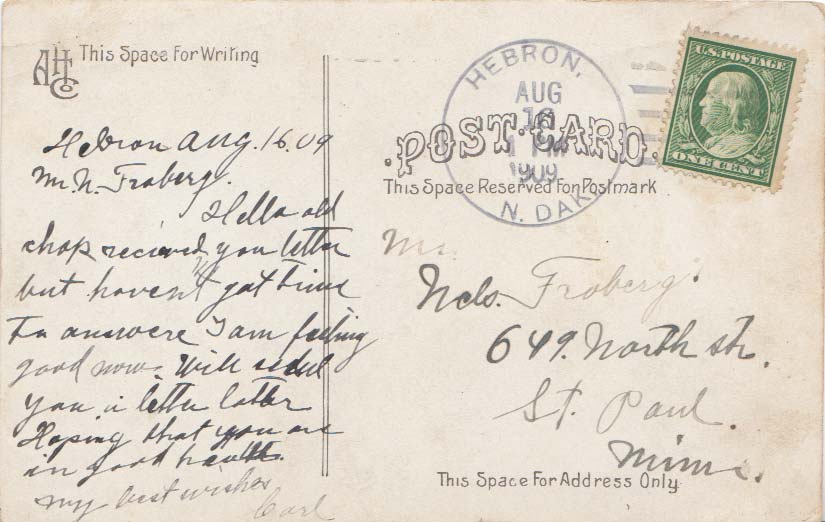 AHCo This Space For Writing
Hebron Aug. 16. 09
Mr. N. Froberg.
Hello old
chap recieved you letter
but havent got time
To answere I am feeling
good now. Will sedel
you a letter latter
Hoping that you are
in good health.
my best wishes
Carl
U.S. POSTAGE
ONE CENT
HEBRON,
AUG
16
1 PM
1909
N. DAK.
POST CARD.
This Space Reserved For Postmark
Mr.
Nels. Froberg.
649. North str.
St. Paul.
Minn.
This Space For Address Only